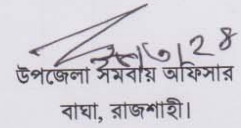 উপজেলা সমবায় অফিসার
বাঘা, রাজশাহী।